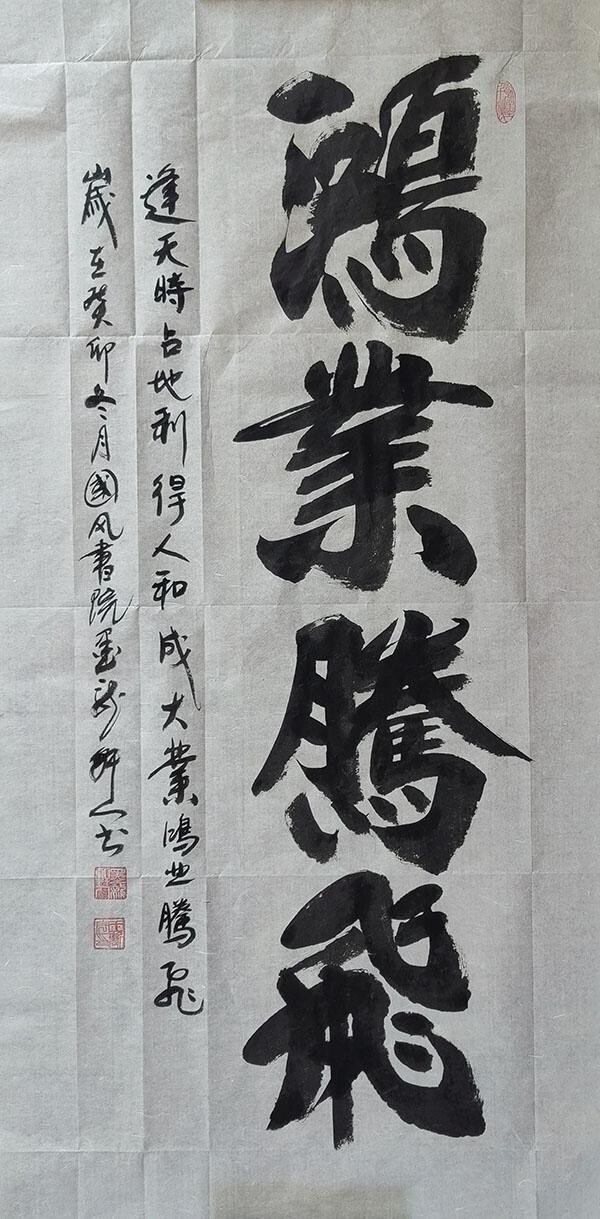 鴻業騰飛
逢天時占地利得人和成大業鴻业騰飛
歲在癸卯冬月國风書院墨龍軒人书